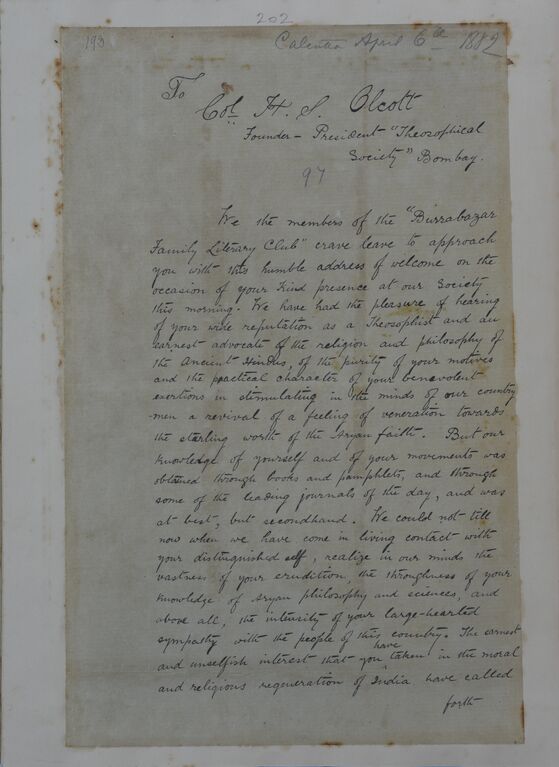 202
193
Calcutta April 6th 1882
To
Col. H. S. Olcott
Founder - President "Theosophical
Society" Bombay.
97
We the members of the "Burrabazar
Family Literary Club" crave leave to approach
you with this humble address of welcome on the
occasion of your kind presence at our Society
this morning. We have had the pleasure of hearing
of your wide reputation as a Theosophist and an
earnest advocate of the religion and philosophy of
the Ancient Hindus, of the purity of your motives
and the practical character of your benevolent
exertions in stimulating in the minds of our country
-men a revival of a feeling of veneration towards
the sterling worth of the Aryan faith. But our
knowledge of yourself and of your movements was
obtained through books and pamphlets, and through
some of the leading journals of the day, and was
at best, but secondhand. We could not till
now when we have come in living contact with
your distinguished self, realize in our minds the
vastness of your erudition, the throughness of your
knowledge of Aryan philosophy and sciences, and
above all, the intensity of your large-hearted
sympathy with the people of this country. The earnest
and unselfish interest that you have taken in the moral
and religious regeneration of India have called
forth